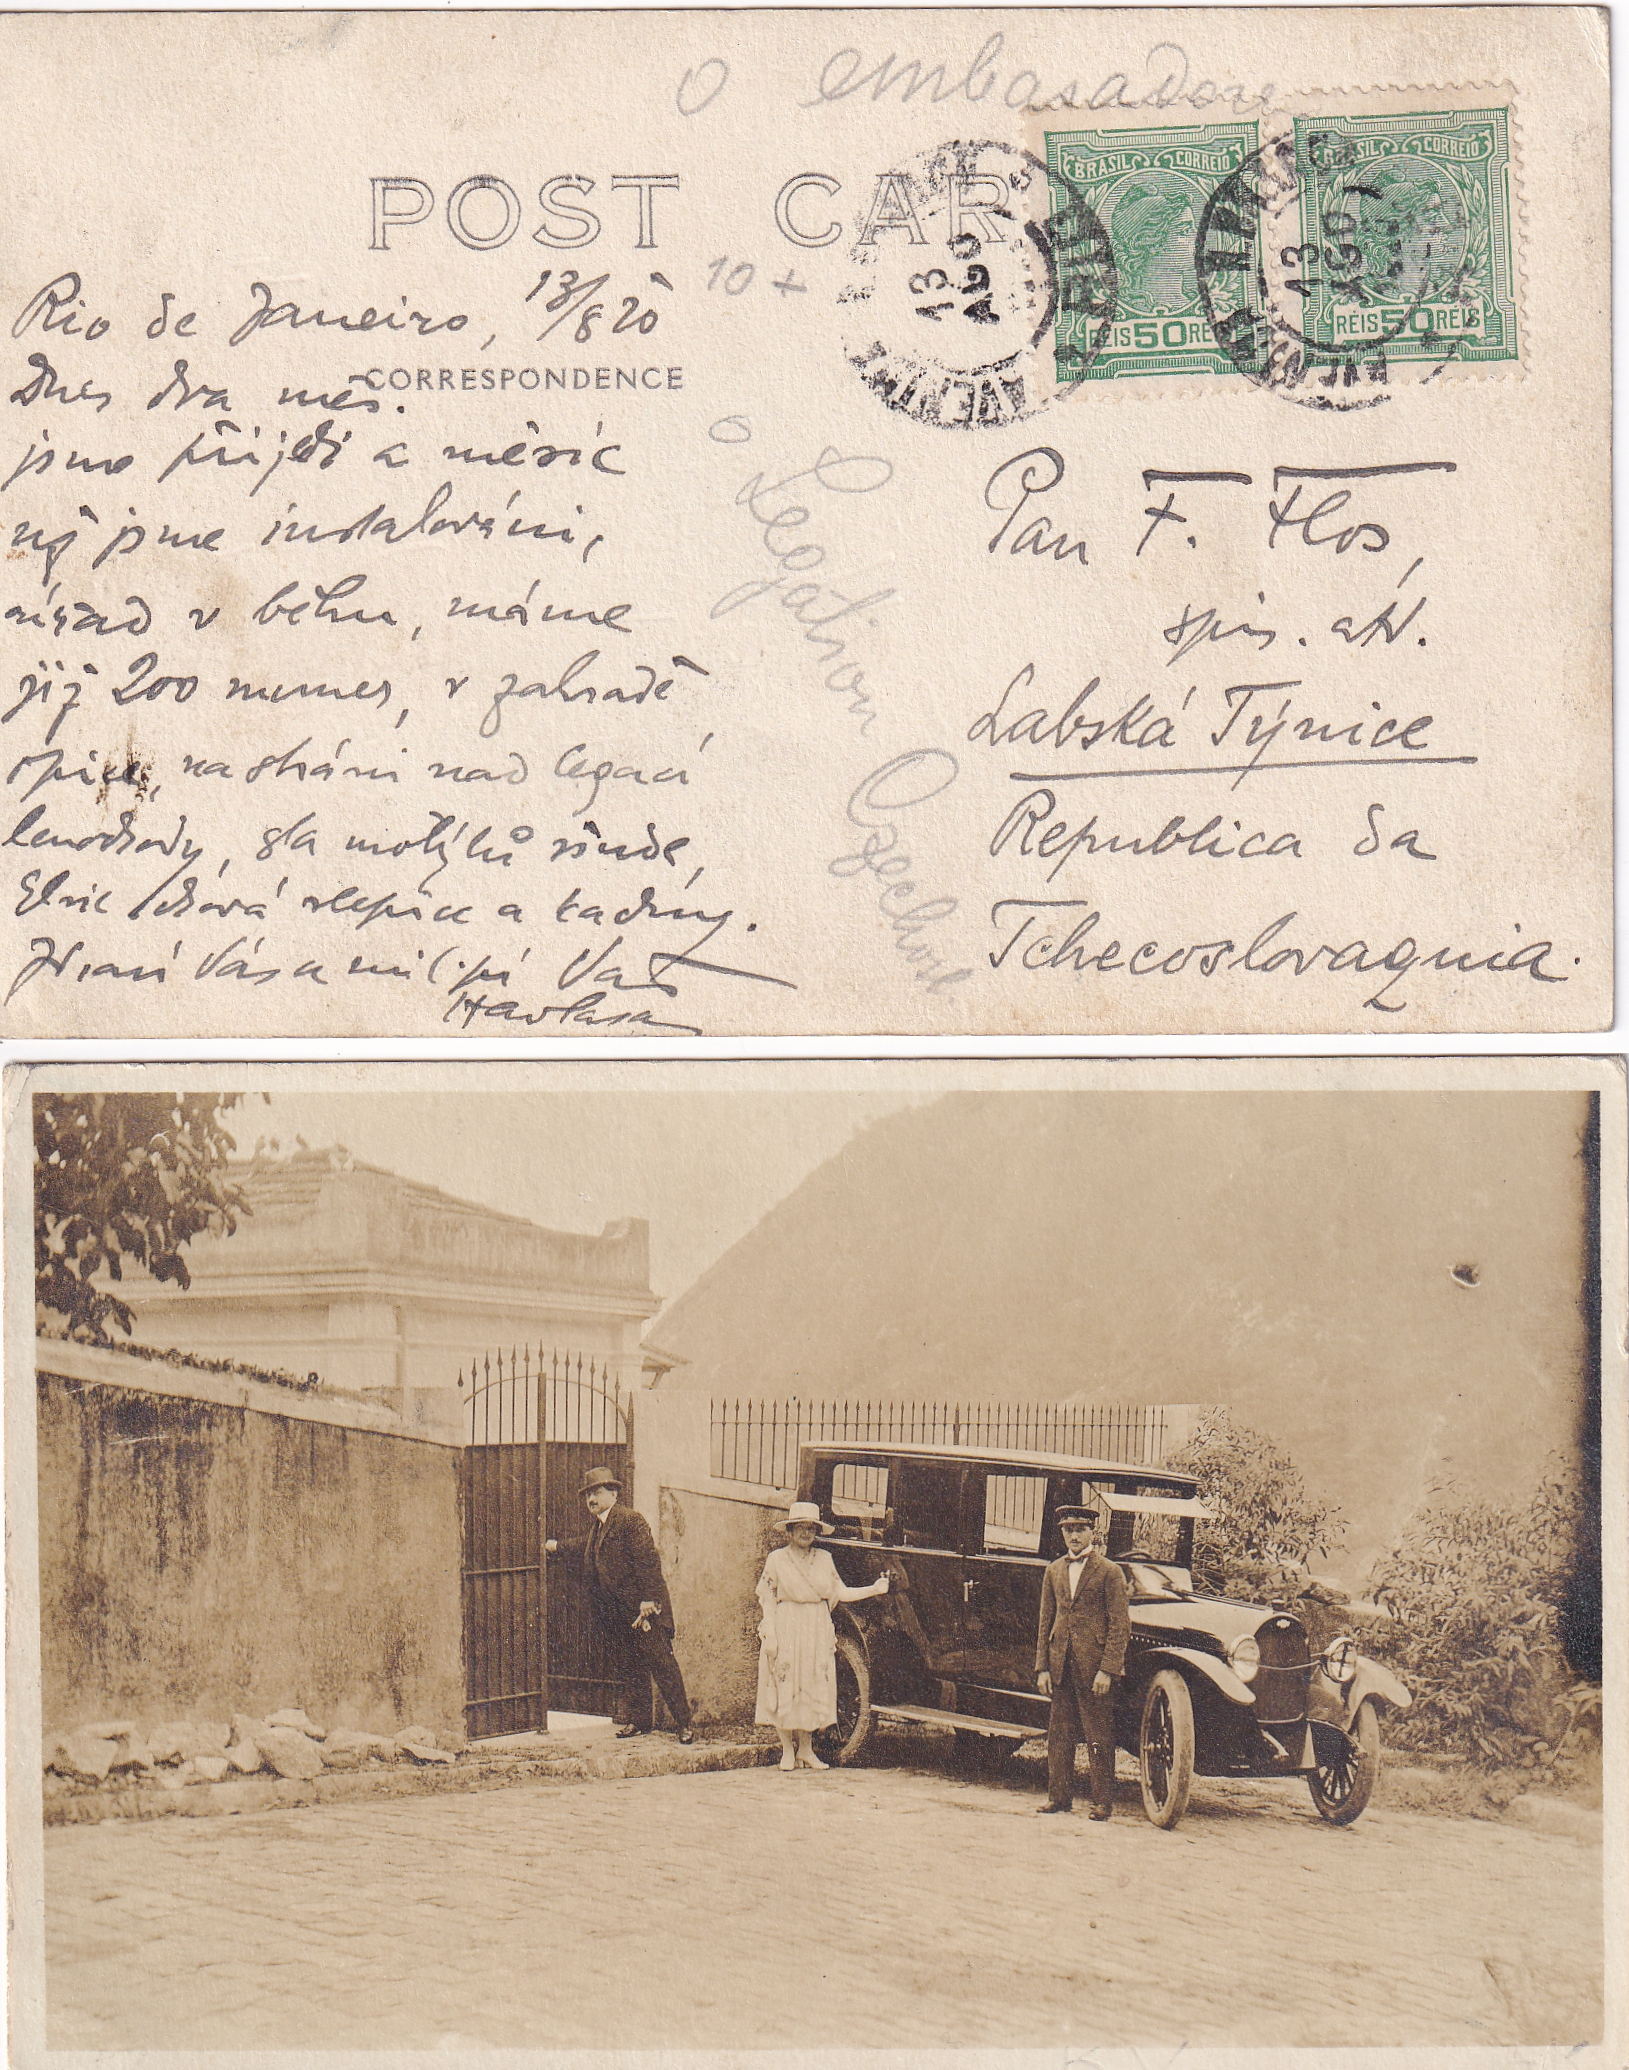 o embasadore
POST CAR
BRASIL CORREIO
BRASIL CORREIO
REIS 50 REIS
REIS 50 REIS
13
AGO
AVENIDA
13
AGO
AVENIDA
10 +
Rio de Janeiro, 13/8 20
CORRESPONDENCE
Dnes dva měs.
jsme přijeli a měsíc
již jsme instalováni,
úřad v běhu, máme
již 200 numer, v zahradě
opice, na stráni nad legací
lenochody, sta motýlů všude,
chová slepice a kachny.
Zdraví Vás a mil. pí Váš
Havlasa
o Legation Czechosl.
Pan F. Flos,
spis. atd.
Labská Týnice
Republica da
Tchecoslovaquia.